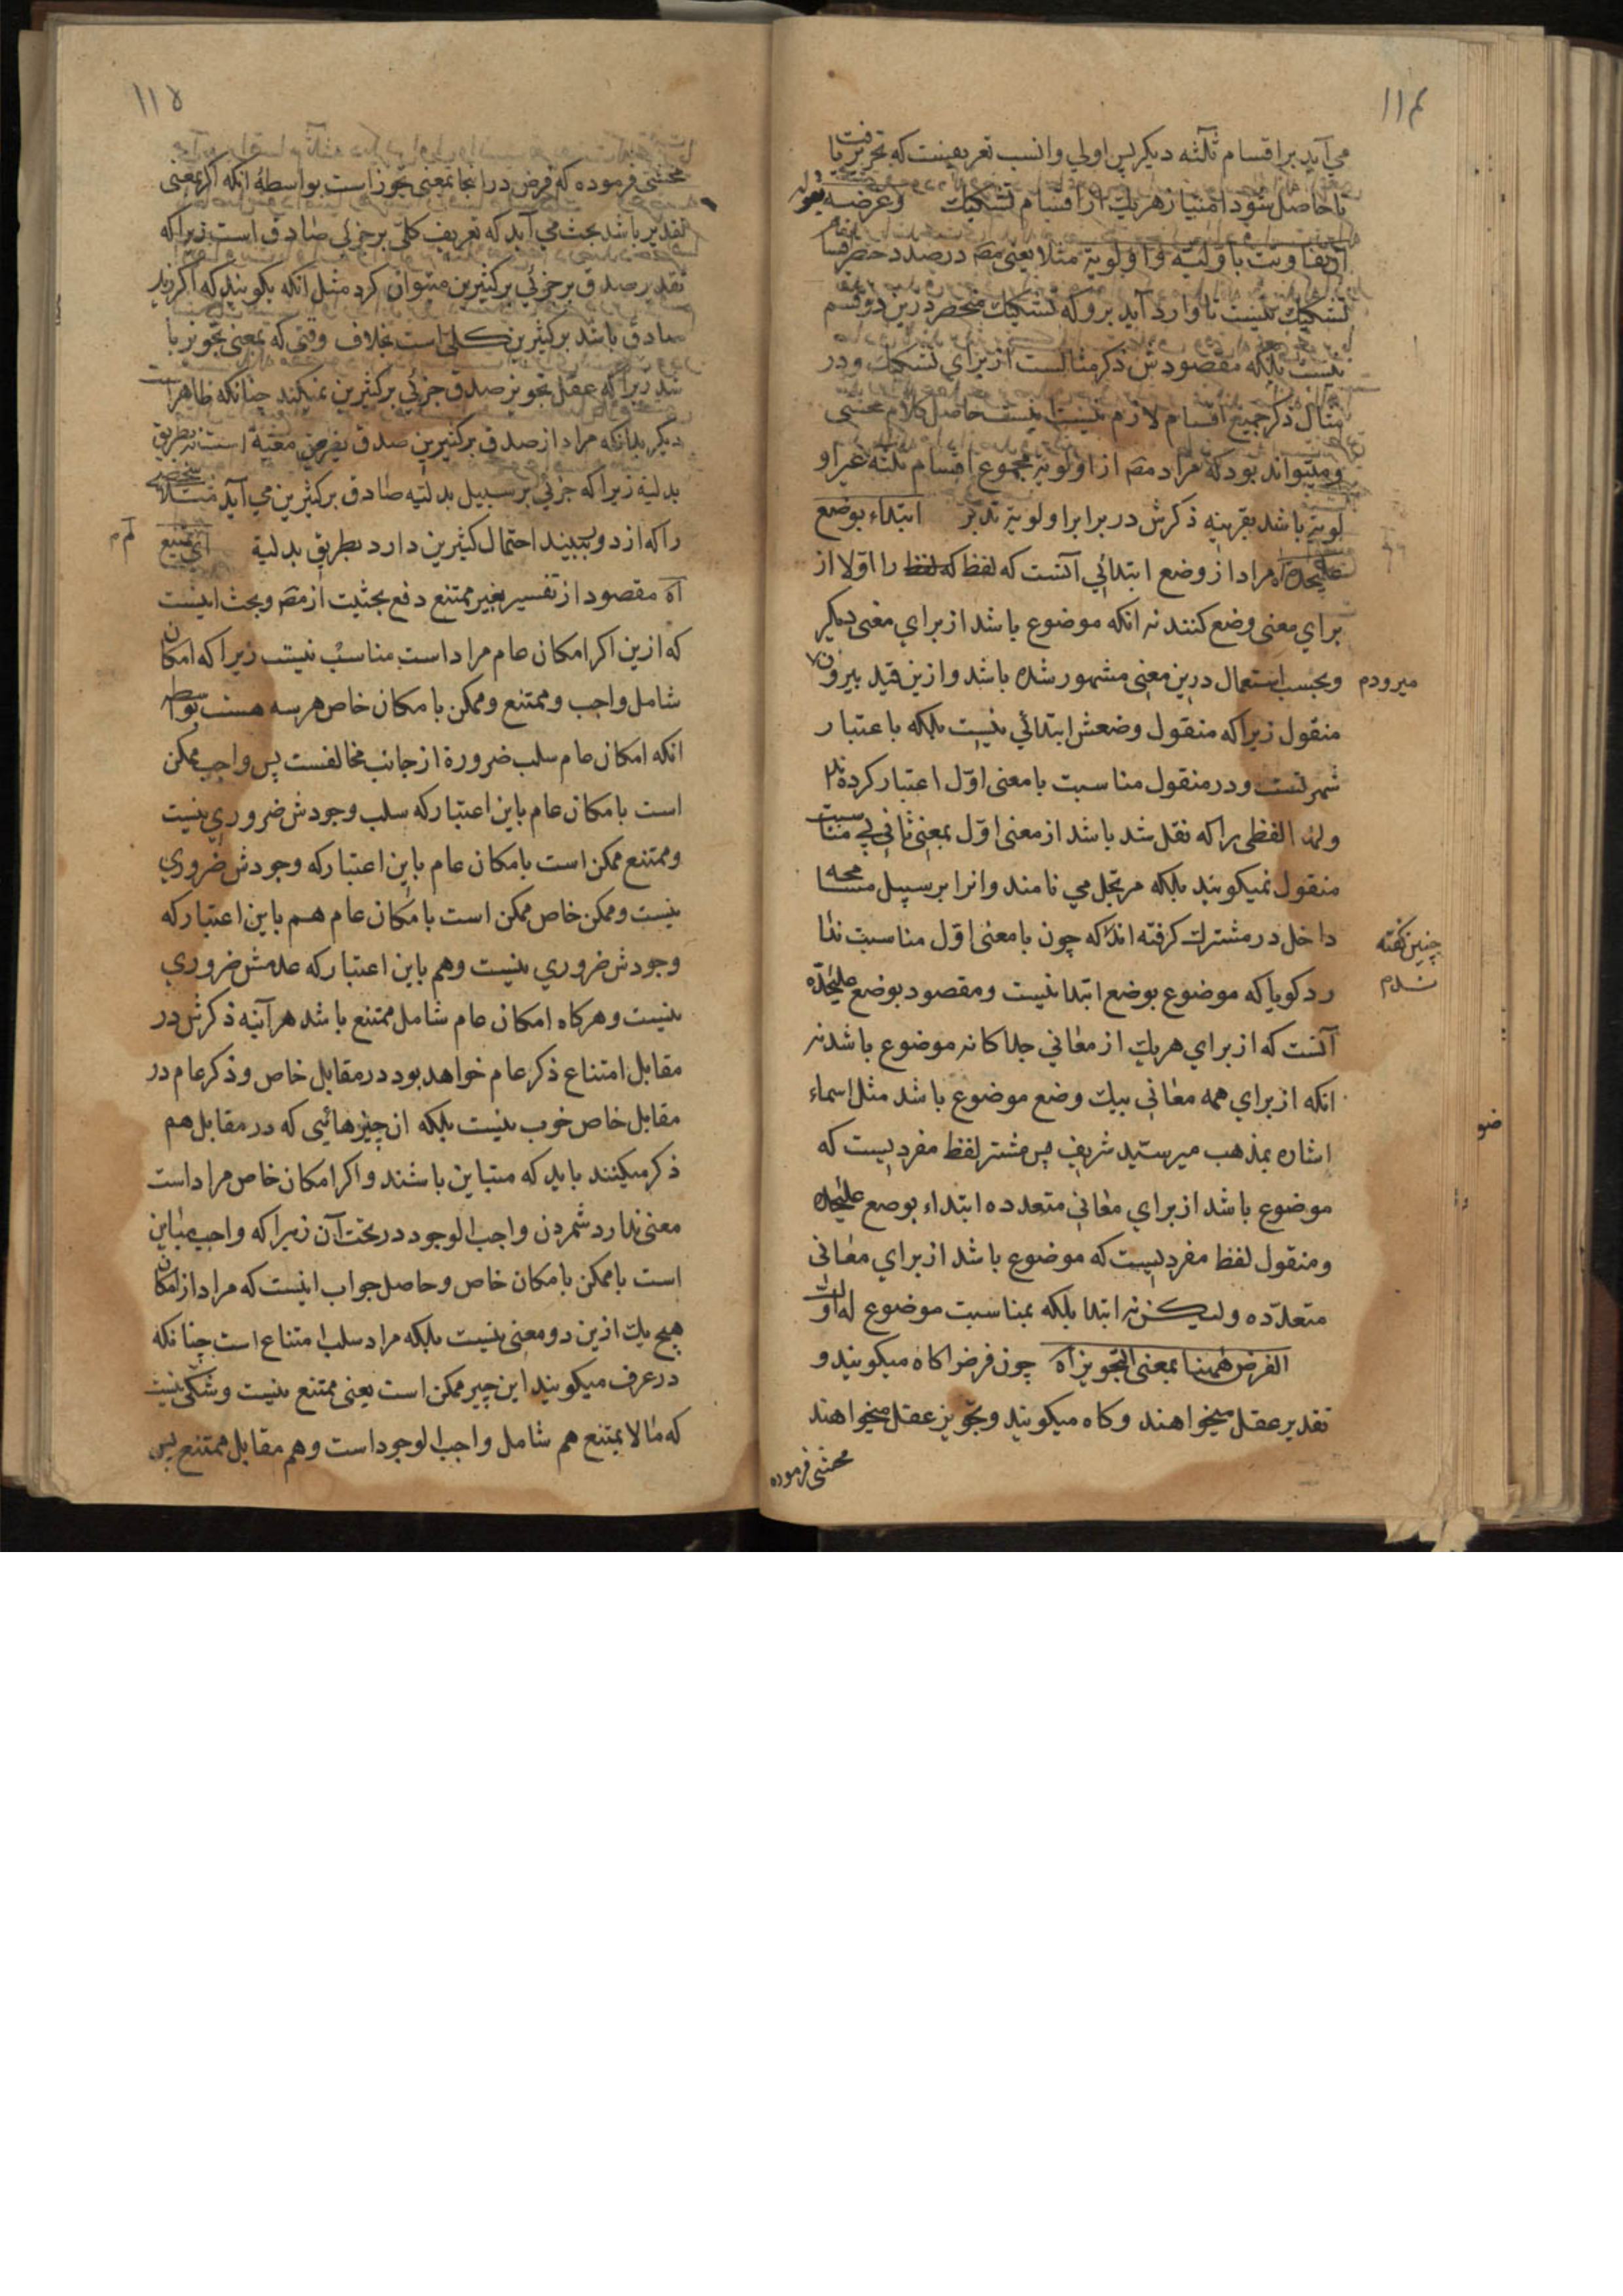 ۱۱۴
می آید بر اقسام ثلثه دیکر پس اولی و انسب تعریفیست که تحریر یافت
تا حاصل شود امتیاز هر یك از اقسام تشکیك وغرضه بقوله
ان تفاوت باولیة و اولویة مثلا یعنی مصَ در صدد حصر اقسام
تشکیك نیست تا وارد آید برو که تشکیك منحصر درین دو قسم
نیست بلکه مقصودش ذکر مثالست از برای تشکیك و در
مثال ذکر جمیع اقسام لازم نیست اینست حاصل کلام محشی
ومیتواند بود که مراد مصَ از اولویة مجموع اقسام ثلثه غیر او
لویة باشد بقرینه ذکرش در برابر اولویة تدبر ابتداء بوضع
علیحده آه مراد از وضع ابتدائی آنست که لفظ که لفظ را اولا از
برای معنی وضع کنند نه انکه موضوع باشد از برای معنی دیکر
وبحسب استعمال درین معنی مشهور شده باشد و ازین قید بیرون
میرودم
منقول زیرا که منقول وضعش ابتدائی نیست بلکه باعتبار
شهرتست و در منقول مناسبت با معنی اول اعتبار کرده
ولهذا لفظی را که نقل شد باشد از معنی اول بمعنی ثانی بی مناسبت
منقول نمیکویند بلکه مرتجل می نامند و انرا بر سبیل مسامحه
داخل در مشترك کرفته اند که چون با معنی اول مناسبت ندا
چنین کفته
شدم
رد کویا که موضوع بوضع ابتدا نیست و مقصود بوضع علیحده
آنست که از برای هریك از معانی جدا کانه موضوع باشد نه
انکه از برای همه معانی بیك وضع موضوع باشد مثل اسماء
اشاره بمذهب میر سید شریف پس مشتر لفظ مفردیست که
موضوع باشد از برای معانی متعدده ابتداء بوضع علیحده
ومنقول لفظ مفردیست که موضوع باشد از برای معانی
متعدده ولیکن نه ابتدا بلکه بمناسبت موضوع له اول
الفرض ههنا بمعنی التجویز آه چون فرض را کاه میکویند و
تقدیر عقل میخواهند وکاه میکویند وتجویز عقل میخواهند
محشی فرموده
۱۱۵
محشی فرموده که فرض در اینجا بمعنی تجوز است بواسطهٔ انکه اکر بمعنی
تقدیر باشد بحث می آید که تعریف کلی بر جزئی صادق است زیرا که
تقدیر صدق بر جزئی بر کثیرین میتوان کرد مثل انکه بکویند که اکر زید
صادق باشد بر کثیرین کلی است بخلاف وقتی که بمعنی تجویز با
شد زیرا که عقل تجویز صدق جزئی بر کثیرین نمیکند چنانکه ظاهر است
دیکر بدانکه مراد از صدق بر کثیرین صدق بفرض معیة است نه بطریق
بدلیة زیرا که جزئی بر سبیل بدلیه صادق بر کثیرین می آید مثلا شخصی
را که از دور ببیند احتمال کثیرین دارد بطریق بدلیة ای یمتنع
آه مقصود از تفسیر بغیر ممتنع دفع بحثیت از مصَ وبحث اینست
که ازین اکر امکان عام مراد است مناسب نیست زیرا که امکان
شامل واجب وممتنع وممکن با مکان خاص هرسه هست بواسطه
انکه امکان عام سلب ضرورة از جانب مخالفست پس واجب ممکن
است بامکان عام باین اعتبار که سلب وجودش ضروری نیست
وممتنع ممکن است بامکان عام باین اعتبار که وجودش ضروری
نیست وممکن خاص ممکن است بامکان عام هم باین اعتبار که
وجودش ضروری نیست وهم باین اعتبار که عدمش ضروری
نیست وهرکاه امکان عام شامل ممتنع باشد هرآینه ذکرش در
مقابل امتناع ذکر عام خواهد بود در مقابل خاص وذکر عام در
مقابل خاص خوب نیست بلکه ان چیزهائیی که در مقابل هم
ذکر میکنند باید که متباین باشند و اکر امکان خاص مراد است
معنی ندارد شمردن واجب الوجود در تحت آن زیرا که واجب مباین
است باممکن بامکان خاص وحاصل جواب اینست که مراد از امکان
هیچ یك ازین دو معنی نیست بلکه مراد سلب امتناع است چنانکه
در عرف میکویند این چیر ممکن است یعنی ممتنع نیست وشکی نیست
که مالا یمتنع هم شامل واجب الوجود است وهم مقابل ممتنع پس